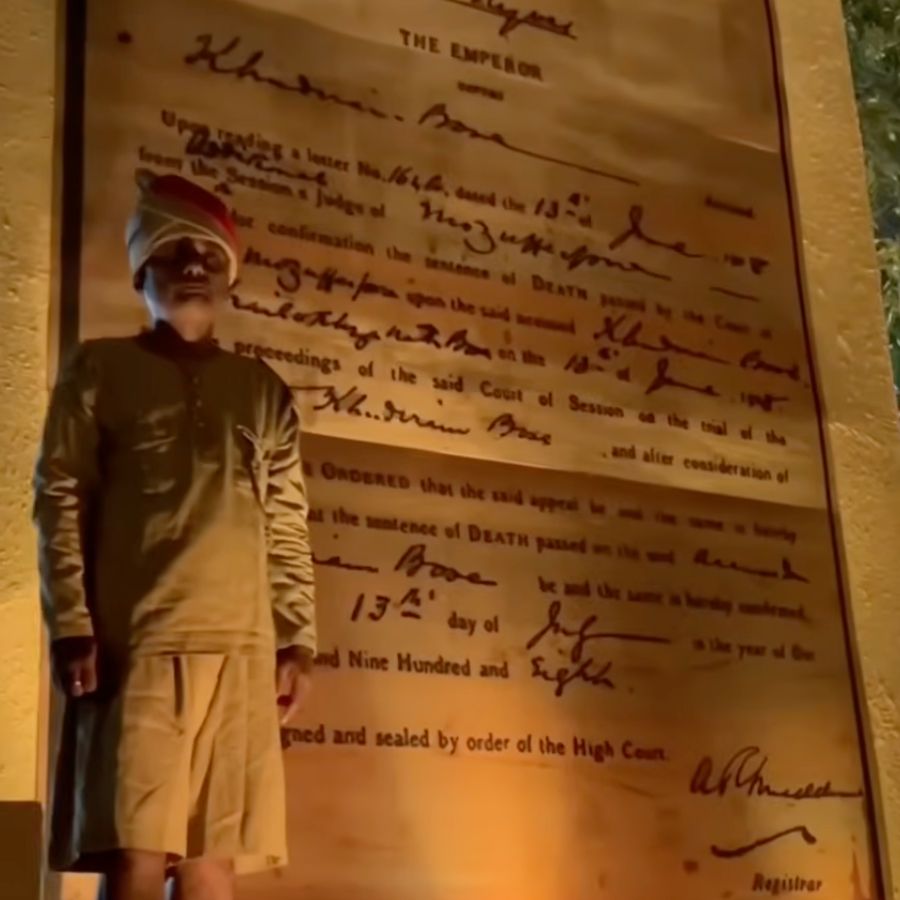 THE EMPEROR
versus
Khudiram Bose
Accused.
Upon reading a letter No. 164, dated the 13th of June 1908
from the Sessions Judge of Mozufferpore
for confirmation the sentence of DEATH passed by the Court of
Mozufferpore upon the said accused Khudiram Bose
on the 13th of June 1908.
proceedings of the said Court of Session on the trial of the
Khudiram Bose and after consideration of
ORDERED that the said appeal be and the same is hereby
the sentence of DEATH passed on the said accused
Bose be and the same is hereby confirmed.
13th day of July in the year of Our
Nine Hundred and Eight.
and sealed by order of the High Court.
Registrar